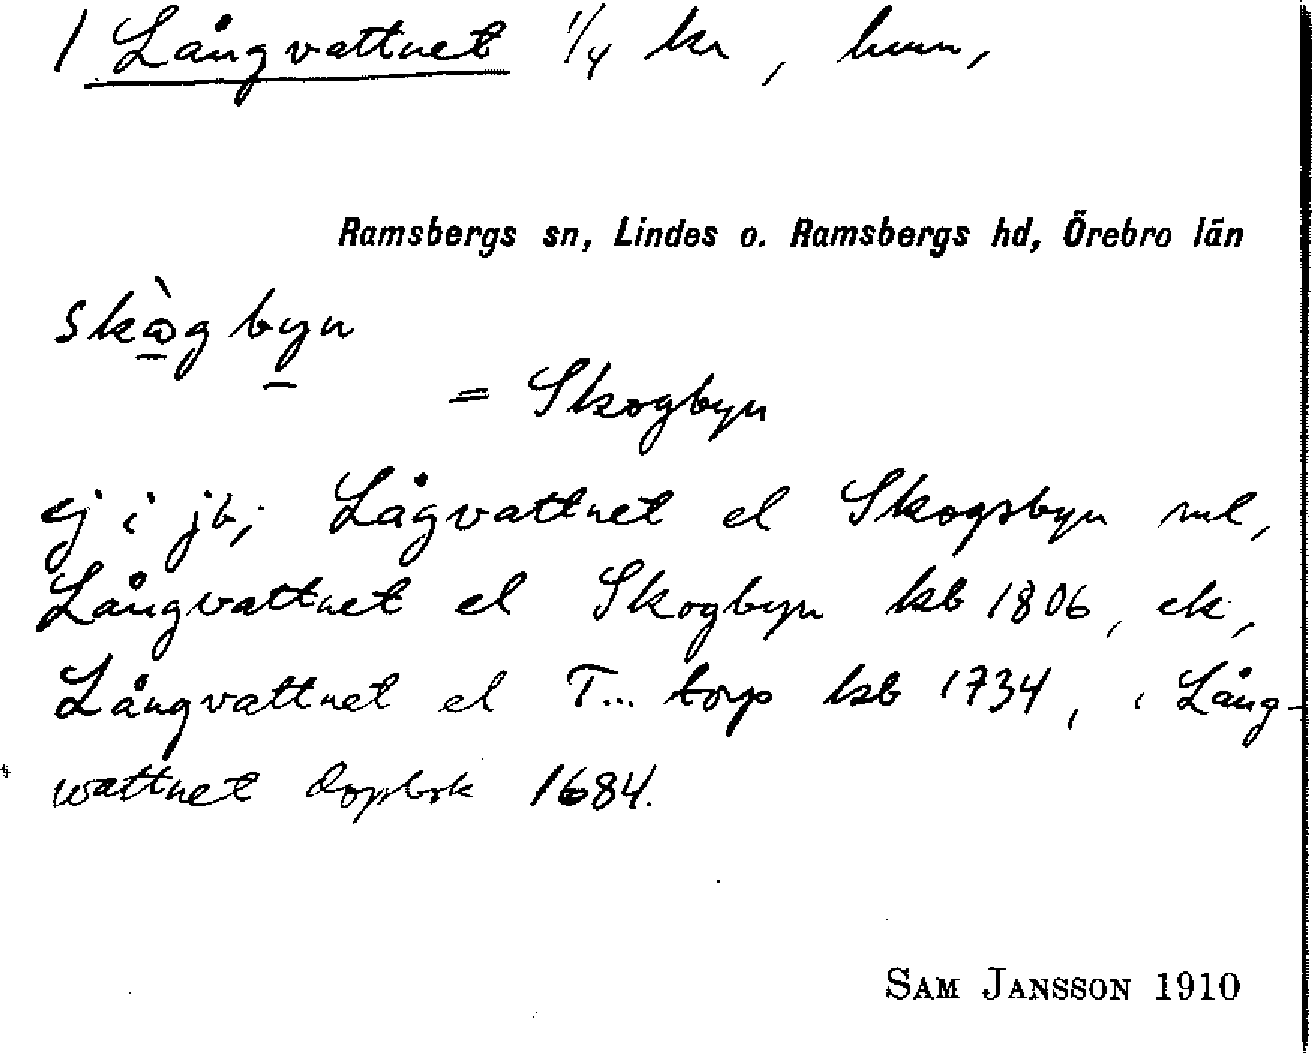 1 Långvattnet 1/4 kr, hmn,
Ramsbergs sn, Lindes o. Ramsbergs hd, Örebro län
skògbyn
= Skogbyn
ej i jb; Lågvattnet el Skogsbyn rul,
Långvattnet el Skogbyn kb 1806, ek,
Långvattnet el T... torp kb 1734, i Lång-
wattnet dopbok 1684.
SAM JANSSON 1910